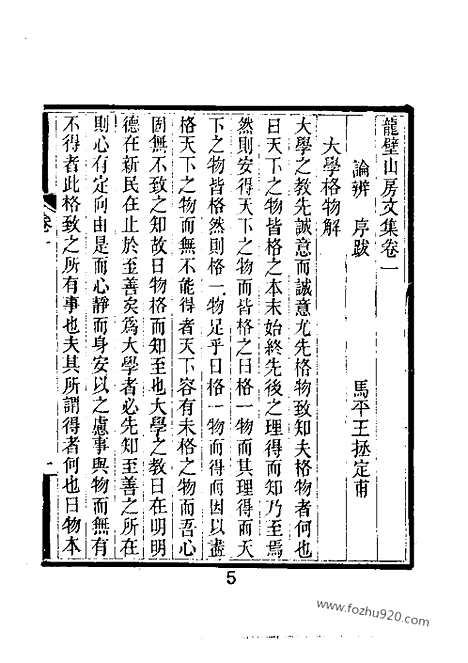 龍壁山房文集卷一
論辨 序跋 馬平王拯定甫
大學格物解
大學之敎先誠意而誠意尤先格物致知夫格物者何也
曰天下之物皆格之本末始終先後之理得而知乃至焉
然則安得天下之物而皆格之曰格一物而其理得而天
下之物皆格然則格一物足乎曰格一物而得而因以盡
格天下之物而無不能得者天下容有未格之物而吾心
固無不致之知故曰物格而知至也大學之敎曰在明明
德在新民在止於至善矣爲大學者必先知至善之所在
則心有定向由是而心靜而身安以之慮事與物而無有
不得者此格致之所有事也夫其所謂得者何也曰物本
卷一
一
5
www.fozhu920.com